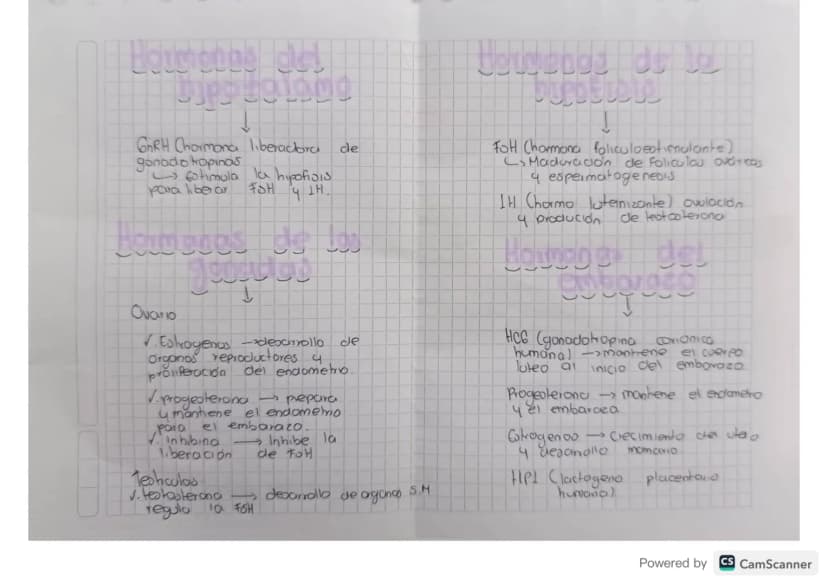 Hormonas del
hipotálamo
GnRH (hormona liberadora de
gonadotropinas
↳ estimula la hipofisis
para liberar FSH y LH.
Hormonas de las
gonadas
Ovario
✓. Estrogenos → desarrollo de
organos reproductores y
proliferación del endometrio.
✓. progesterona → prepara
y mantiene el endometrio
para el embarazo.
✓. Inhibina → Inhibe la
liberación de FSH
Testiculos
✓. testosterona → desarrollo de organos S.M
regula la FSH
Hormonas de la
hipofisis
FSH (hormona foliculoestimulante)
↳ Maduración de foliculos ováricos
y espermatogenesis
LH (hormo luteinizante) ovulación
y produción de testosterona
Hormonas del
embarazo
HCG (gonadotropina corionica
humana) → mantiene el cuerpo
luteo al inicio del embarazo.
Progesterona → mantiene el endometrio
y el embaraza
Estrogenos → Crecimiento del utero
y desarrollo mamario
HPL (lactogeno placentario
humano)
Powered by CS CamScanner